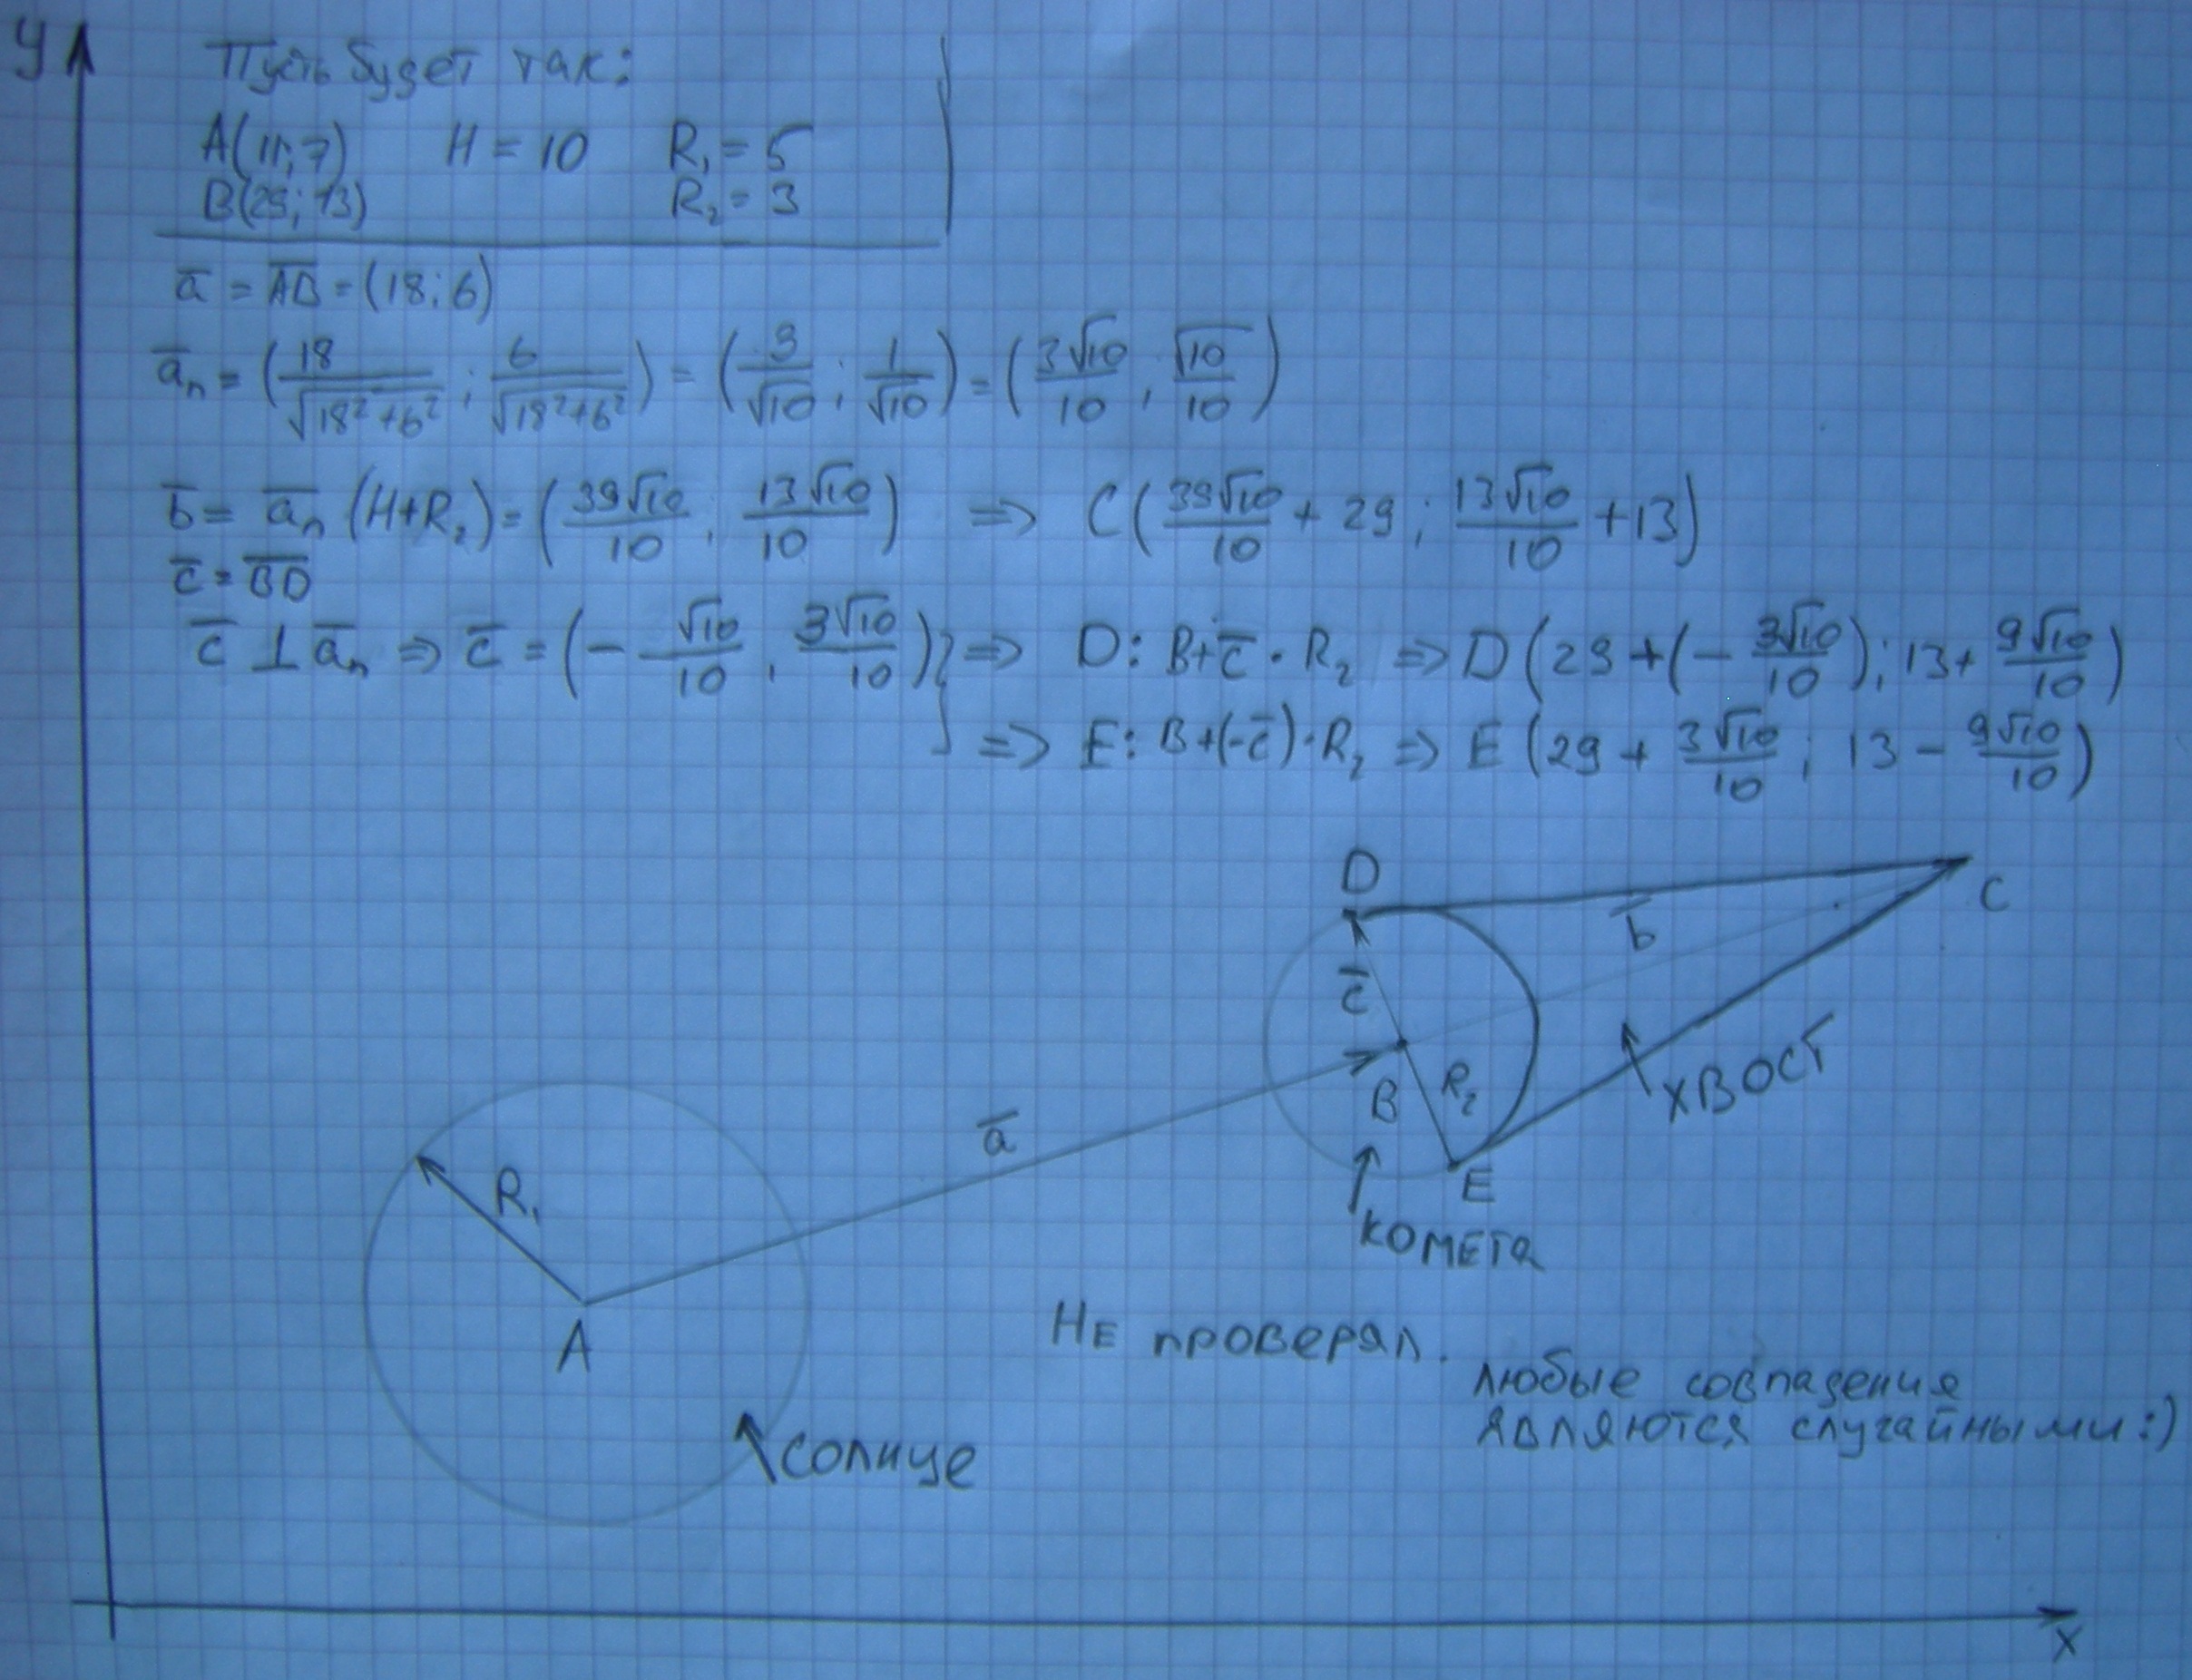 y
Пусть будет так:
A(11;7) H = 10 R₁ = 5
B(29;13) R₂ = 3
a̅ = A̅B̅ = (18;6)
a̅ₙ = (18/√(18²+6²) ; 6/√(18²+6²)) = (3/√10 ; 1/√10) = (3√10/10 , √10/10)
b̅ = a̅ₙ (H+R₂) = (39√10/10 , 13√10/10) => C(39√10/10 + 29 ; 13√10/10 + 13)
c̅ = B̅D̅
c̅ ⊥ a̅ₙ => c̅ = (- √10/10 , 3√10/10)} => D: B+c̅ · R₂ => D(29 + (- 3√10/10); 13 + 9√10/10)
=> E: B+(-c̅)·R₂ => E (29 + 3√10/10 ; 13 - 9√10/10)
D
C
b̅
c̅
хвост
B
R₂
a̅
E
R₁
комета
A
Не проверял.
любые совпадения
являются случайными :)
солнце
x